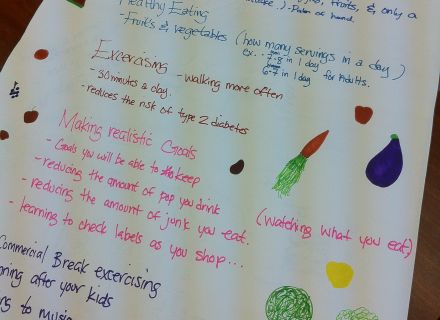 fruits, & only a
Palm of hand.
Healthy Eating
- Fruits & vegetables (how many servings in a day)
ex. - 7-8 in 1 day
6-7 in 1 day for Adults.
Exercising - walking more often
- 30 minutes a day.
- reduces the risk of type 2 diabetes
Making realistic Goals
- Goals you will be able to keep
- reducing the amount of pop you drink
- reducing the amount of junk you eat.
- learning to check labels as you shop...
(Watching what you eat)
Commercial Break exercising
after your kids
to music